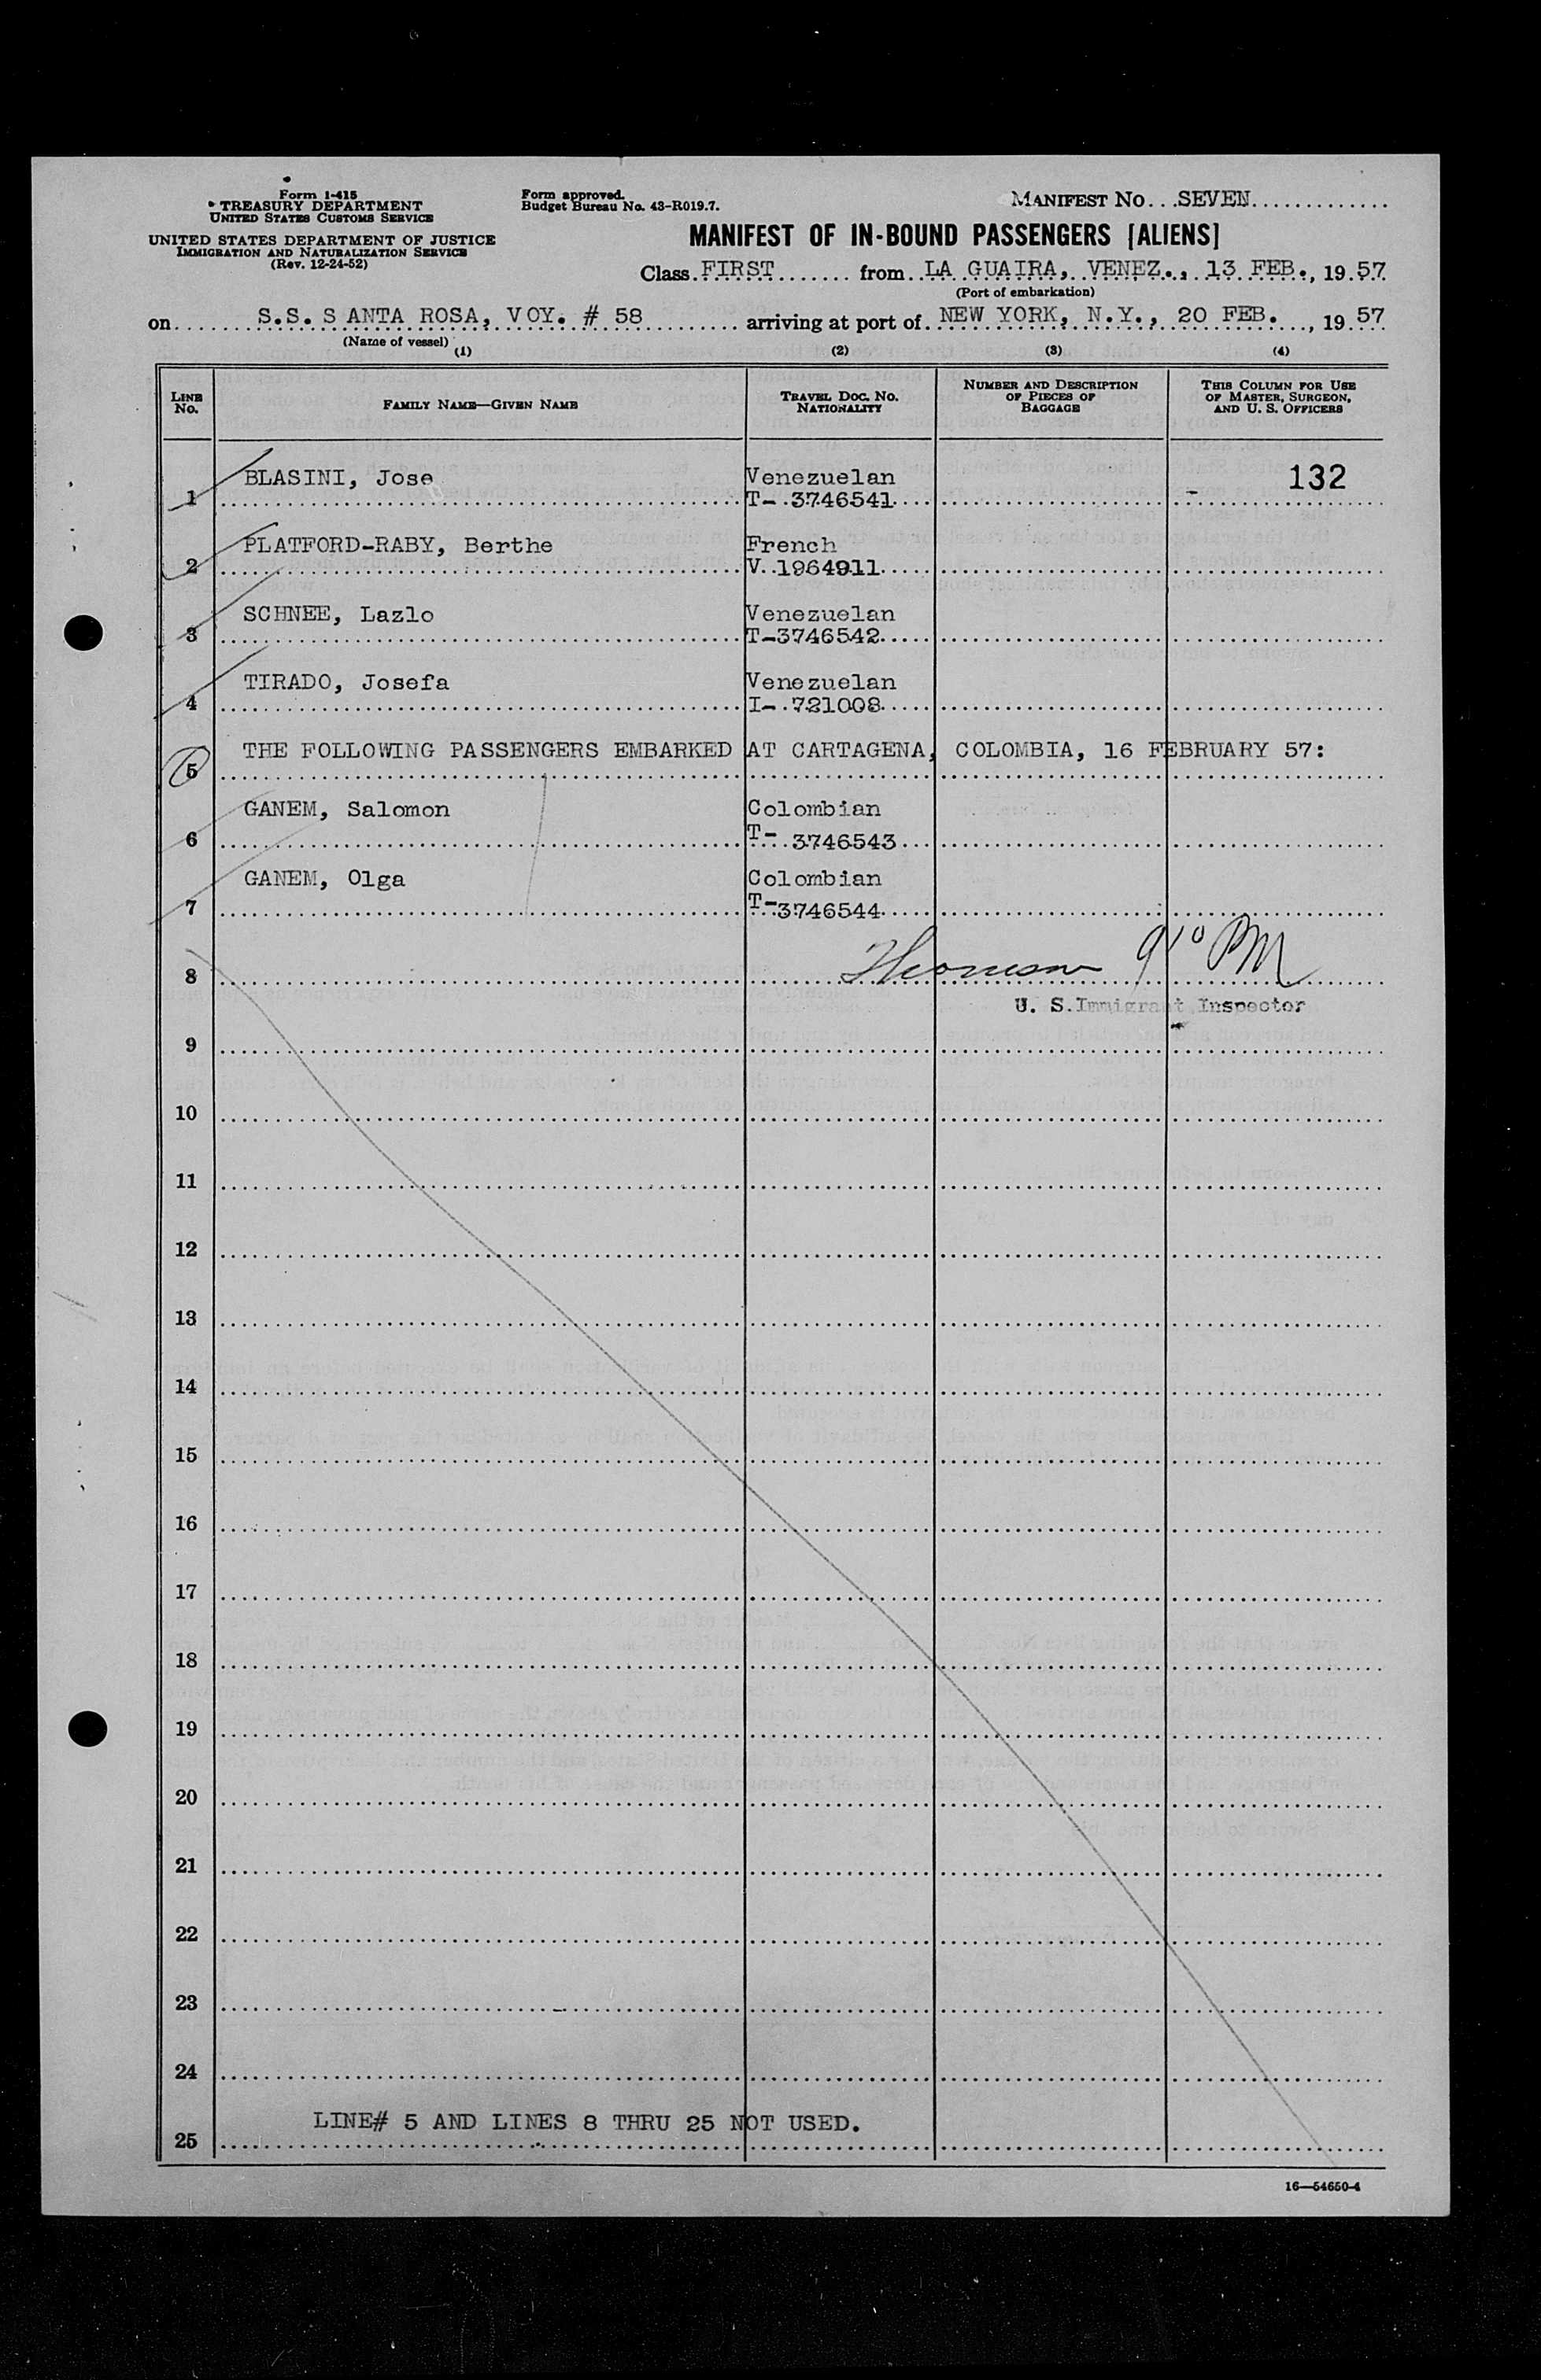 Form I-415
TREASURY DEPARTMENT
UNITED STATES CUSTOMS SERVICE
UNITED STATES DEPARTMENT OF JUSTICE
IMMIGRATION AND NATURALIZATION SERVICE
(Rev. 12-24-52)
Form approved.
Budget Bureau No. 43-R019.7.
MANIFEST NO. SEVEN
MANIFEST OF IN-BOUND PASSENGERS [ALIENS]
Class FIRST from LA GUAIRA, VENEZ., 13 FEB., 19 57
(Port of embarkation)
on S.S. S ANTA ROSA, VOY. # 58 arriving at port of NEW YORK, N.Y., 20 FEB. , 19 57
(Name of vessel)
(1) (2) (3) (4)
LINE NO. FAMILY NAME—GIVEN NAME TRAVEL DOC. NO. NATIONALITY NUMBER AND DESCRIPTION OF PIECES OF BAGGAGE THIS COLUMN FOR USE OF MASTER, SURGEON, AND U. S. OFFICERS
BLASINI, Jose Venezuelan 132
1 T- 3746541
PLATFORD-RABY, Berthe French
2 V 1964911
SCHNEE, Lazlo Venezuelan
3 T-3746542
TIRADO, Josefa Venezuelan
4 I- 721008
THE FOLLOWING PASSENGERS EMBARKED AT CARTAGENA, COLOMBIA, 16 FEBRUARY 57:
5
GANEM, Salomon Colombian
6 T- 3746543
GANEM, Olga Colombian
7 T-3746544
8 Thomson 9 10 PM
U. S. Immigrant Inspector
9
10
11
12
13
14
15
16
17
18
19
20
21
22
23
24
LINE# 5 AND LINES 8 THRU 25 NOT USED.
25
16—54650-4